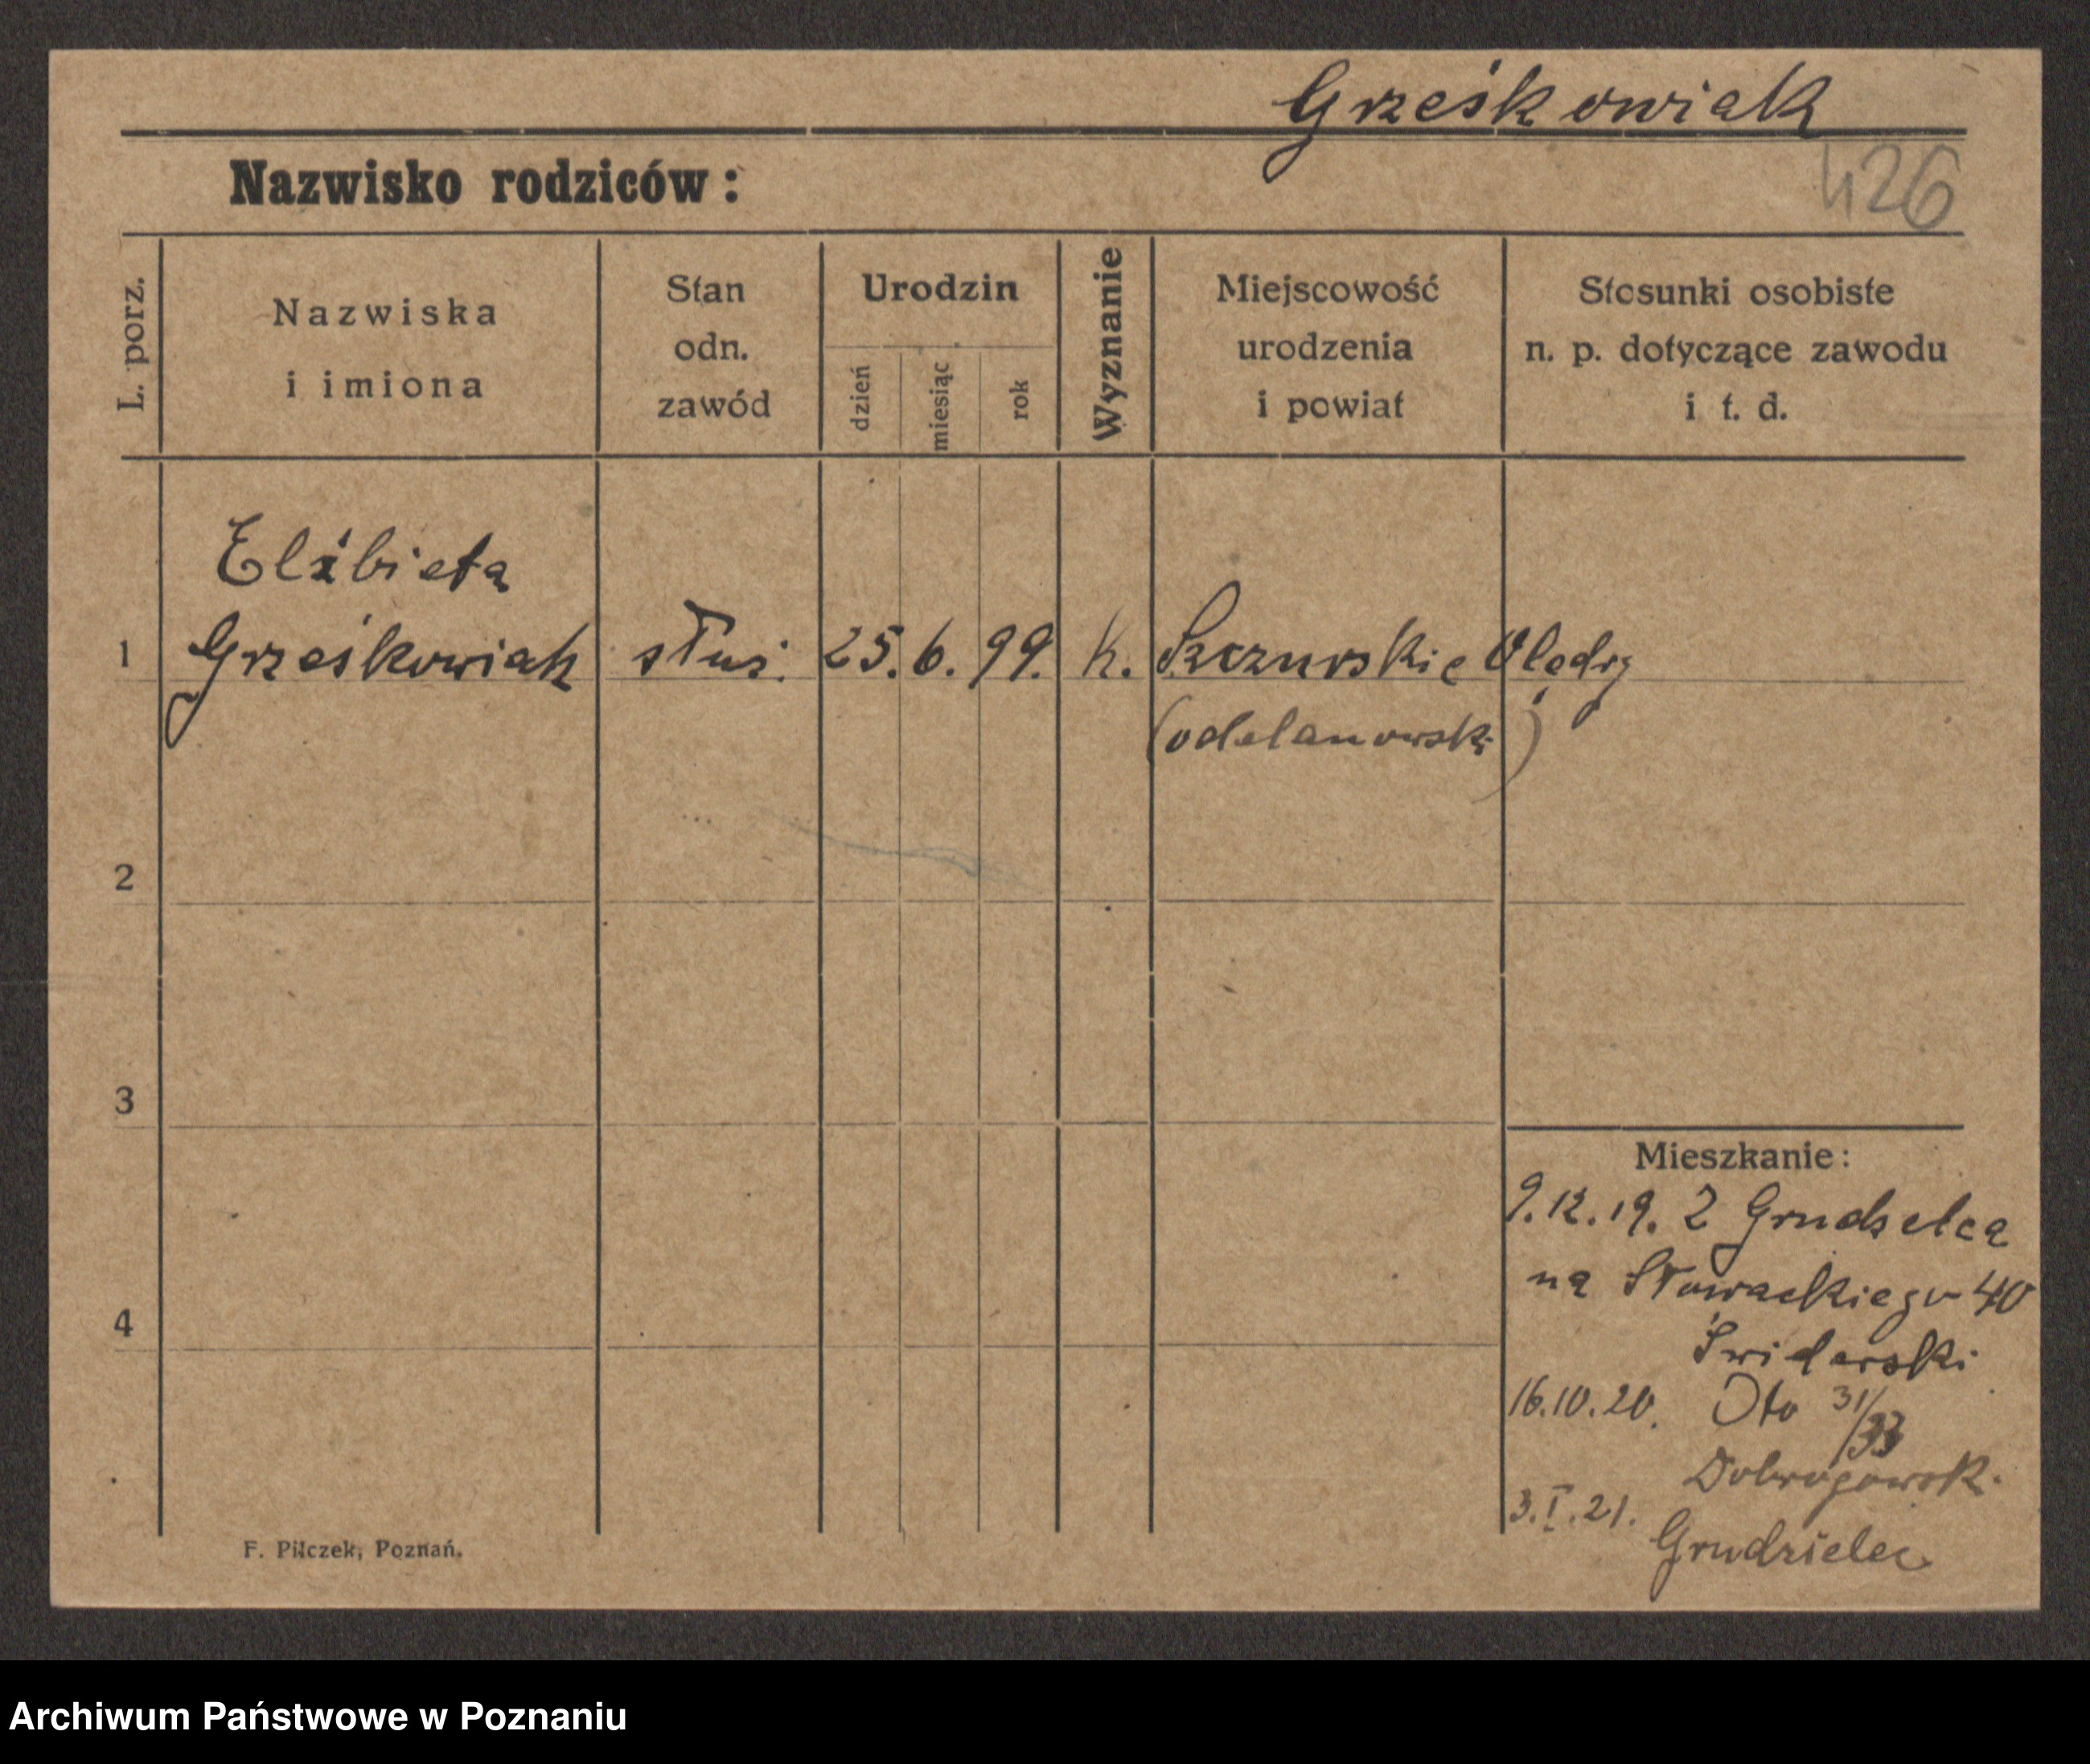 Grześkowiak
Nazwisko rodziców:
426
L. porz.
Nazwiska
i imiona
Stan
odn.
zawód
Urodzin
dzień
miesiąc
rok
Wyznanie
Miejscowość
urodzenia
i powiat
Stosunki osobiste
n. p. dotyczące zawodu
i t. d.
Elżbieta
1 Grześkowiak służ. 25. 6. 99. k. Szczurskie Olędry
(odolanowski)
2
3
4
Mieszkanie:
9.12.19. Z Grudzelca
na Słowackiego 40
Świderski
16.10.20. Oto 31/33
3.I.21.
Grudzielec
F. Pilczek, Poznań.
Archiwum Państwowe w Poznaniu